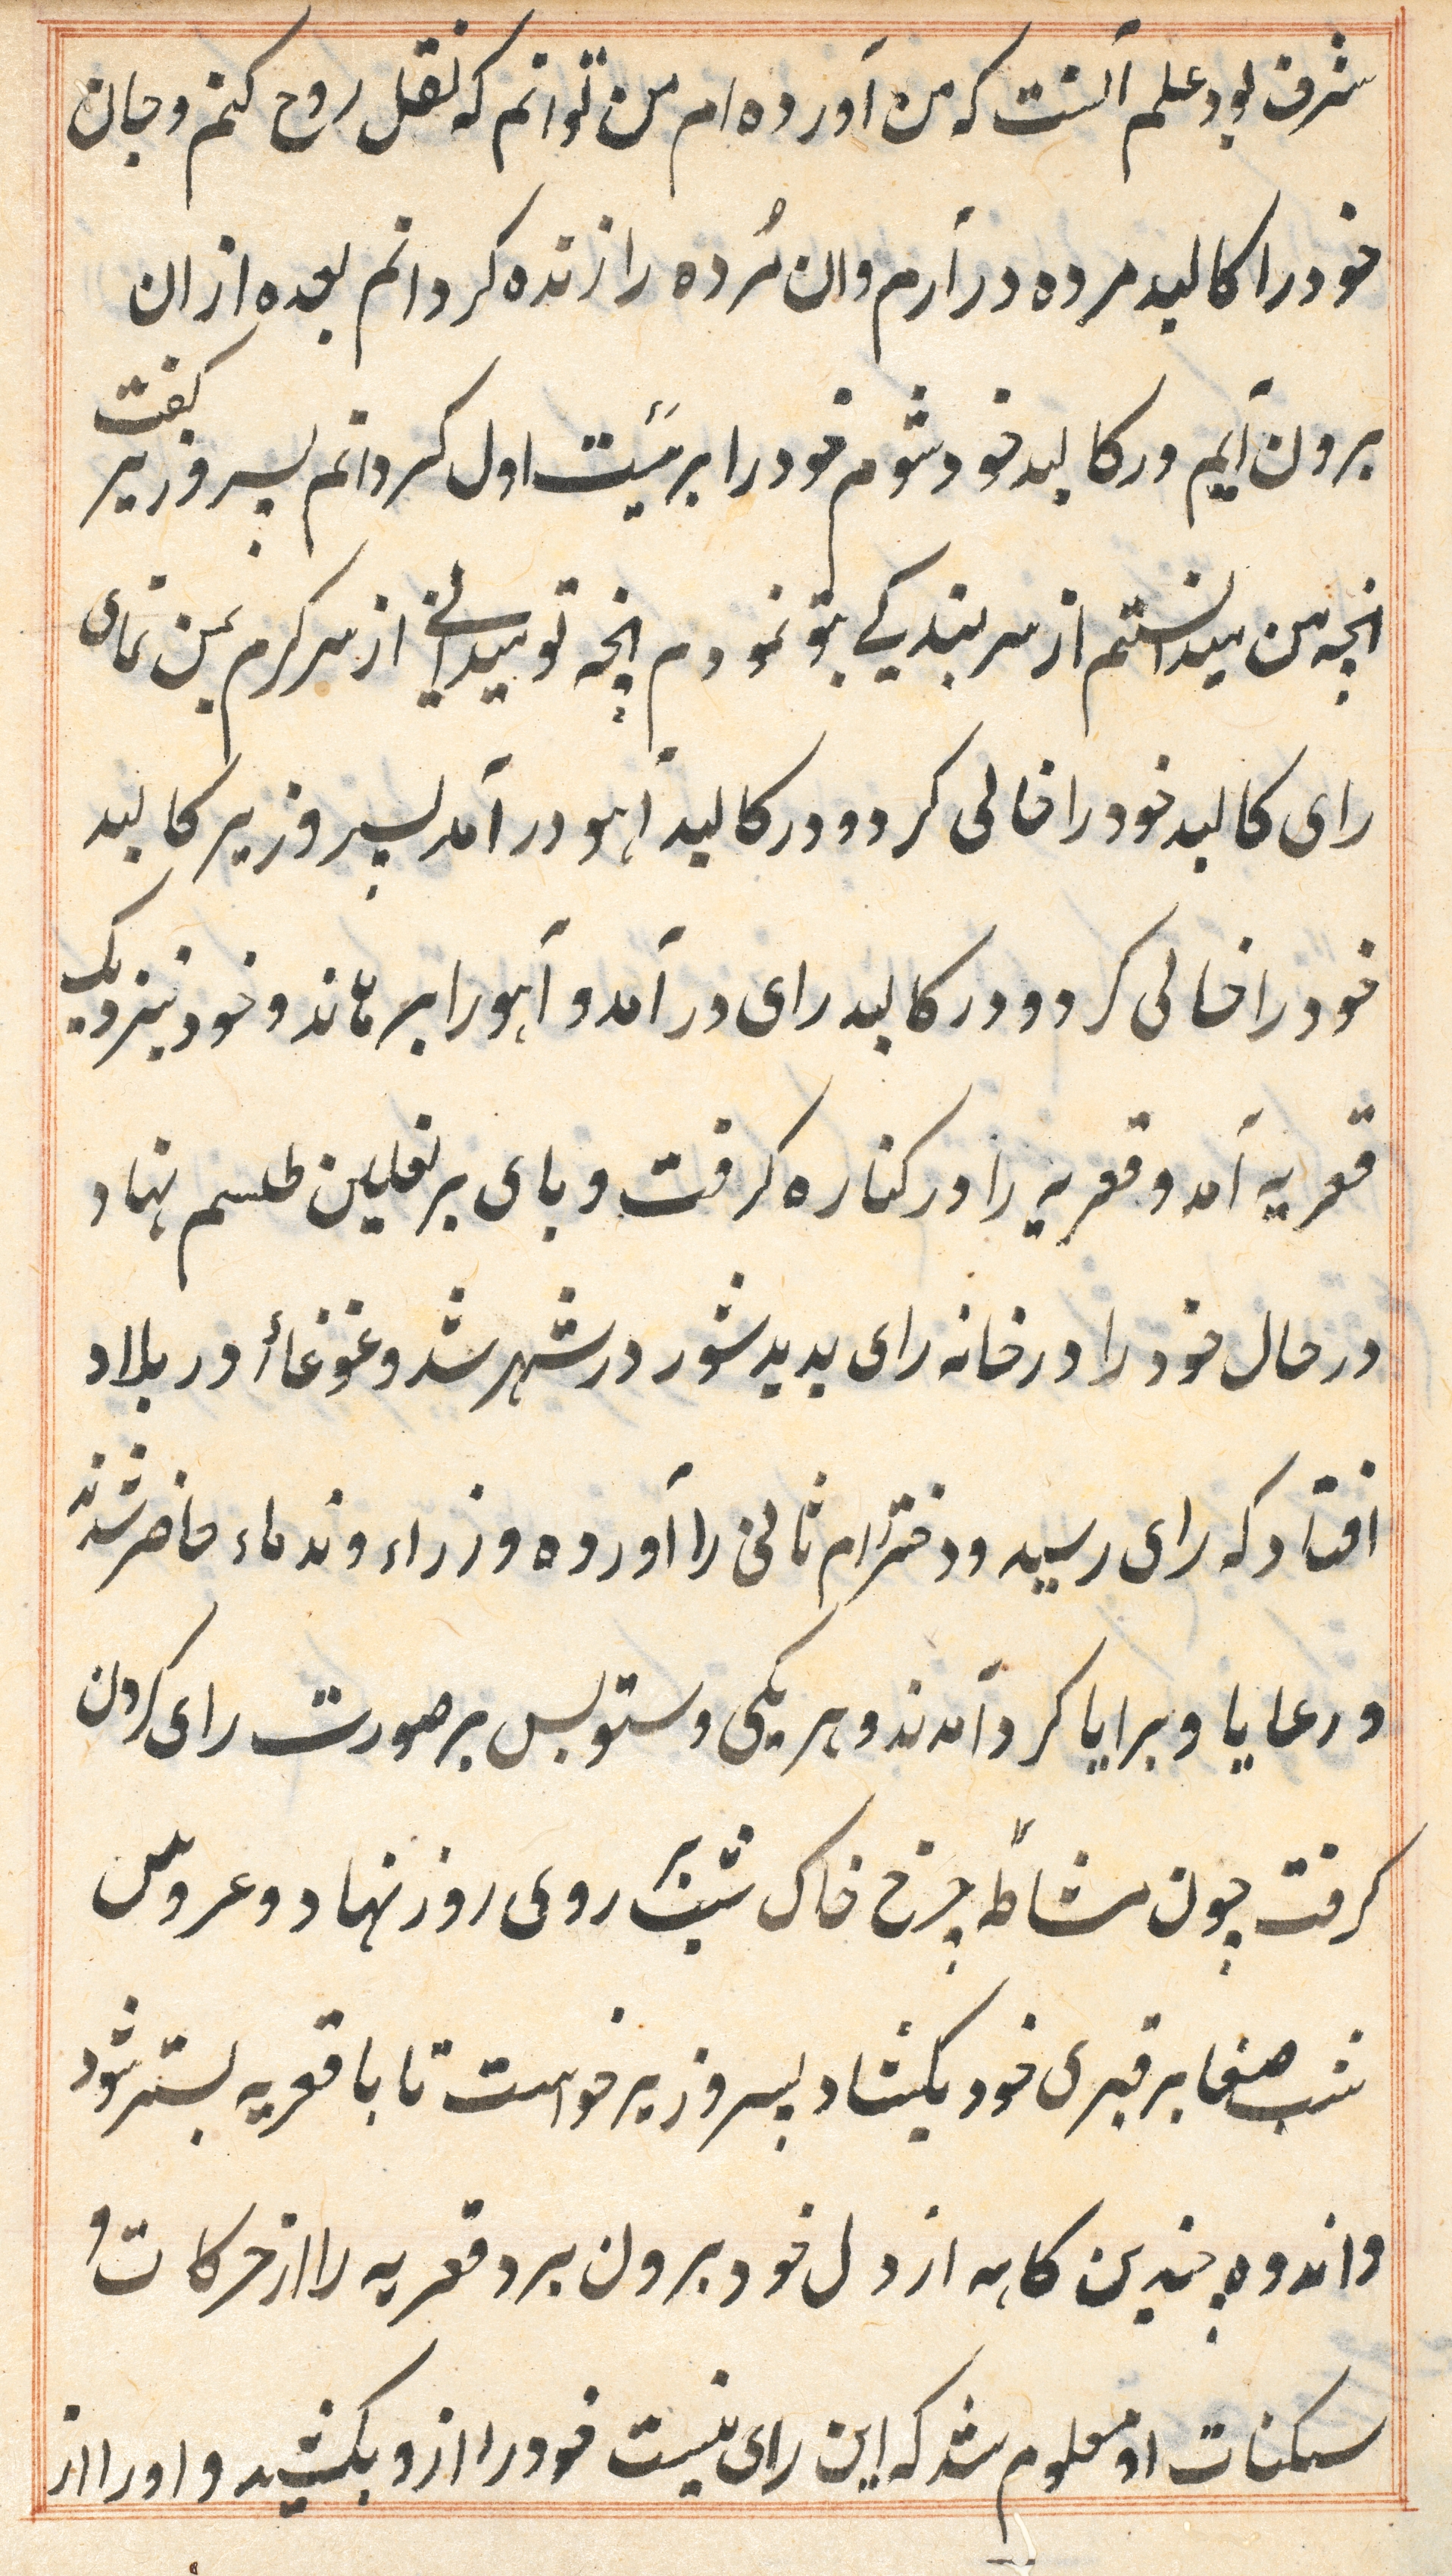 شرف بود علم آنست که من آورده ام من توانم که نقل روح کنم و جان
خود را کالبد مرده در آرم وان مُرده را زنده کردانم بعده ازان
برون آیم ودر کالبد خود شوم خود را بر هئیت اول کردانم پسر وزیر کفت
انچه من میدانستم از سر بندیکی بتو نمودم انچه تو میدانی از سر کرم بمن نمای
رای کالبد خود را خالی کرد و در کالبد آهو در آمد پسر وزیر کالبد
خود را خالی کرد و در کالبد رای در آمد و آهو را برهاند و خود نیزدیک
قعریه آمد و قعریه را در کناره کرفت و بای بر نعلین طلسم نهاد
در حال خود را در خانه رای بدید شور در شهر شد و غوغاأ در بلاد
افتاد که رای رسید و دختر ام ثانی را آورده وزراء و ندماء حاضر شدند
و رعایا و برایا کرد آمدند و هر یکی دستوبس بر صورت رای کردن
کرفت چون مشاطه چرخ خاک شب بر روی روز نهاد و عروس
شب صفا بر قبری خود بکشاد پسر وزیر خواست تا با قعریه بستر شود
و اندوه چندین کاهه از دل خود برون برد قعریه را از حرکات و
سکنات او معلوم شد که این رای نیست خود را ازو بکشید و او را از